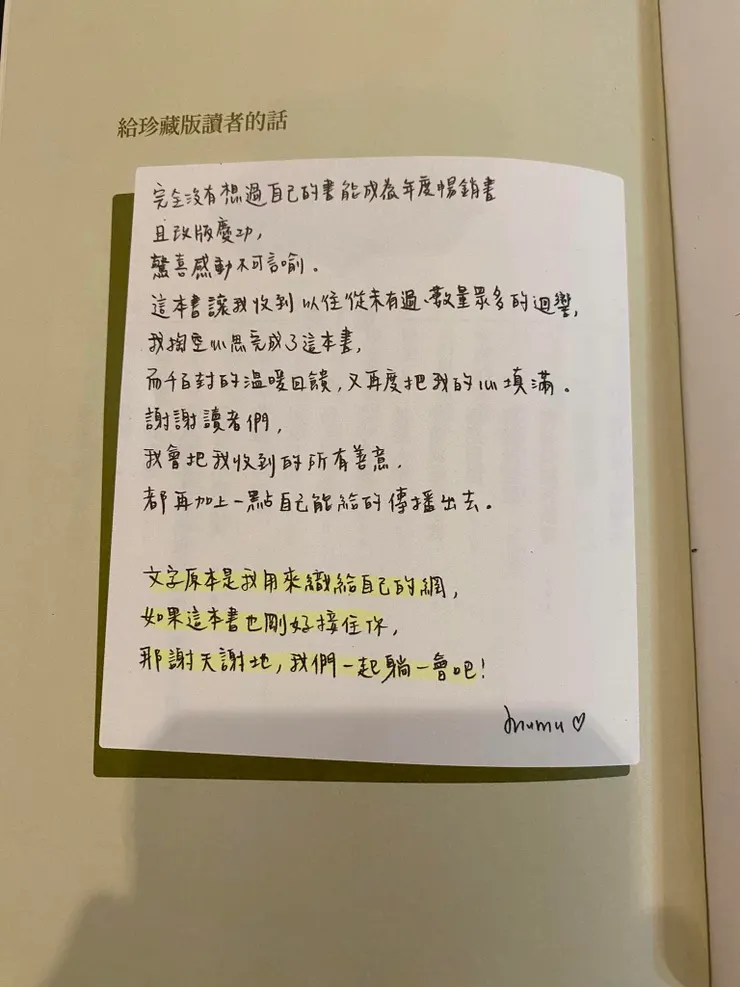 給珍藏版讀者的話
完全沒有想過自己的書能成為年度暢銷書
且改版慶功,
驚喜感動不可言喻。
這本書讓我收到以往從未有過、數量眾多的迴響,
我掏空心思完成了這本書,
而千百封的溫暖回饋,又再度把我的心填滿。
謝謝讀者們,
我會把我收到的所有善意,
都再加上一點自己能給的傳播出去。
文字原本是我用來織給自己的網,
如果這本書也剛好接住你,
那謝天謝地,我們一起躺一會吧!
mumu♡